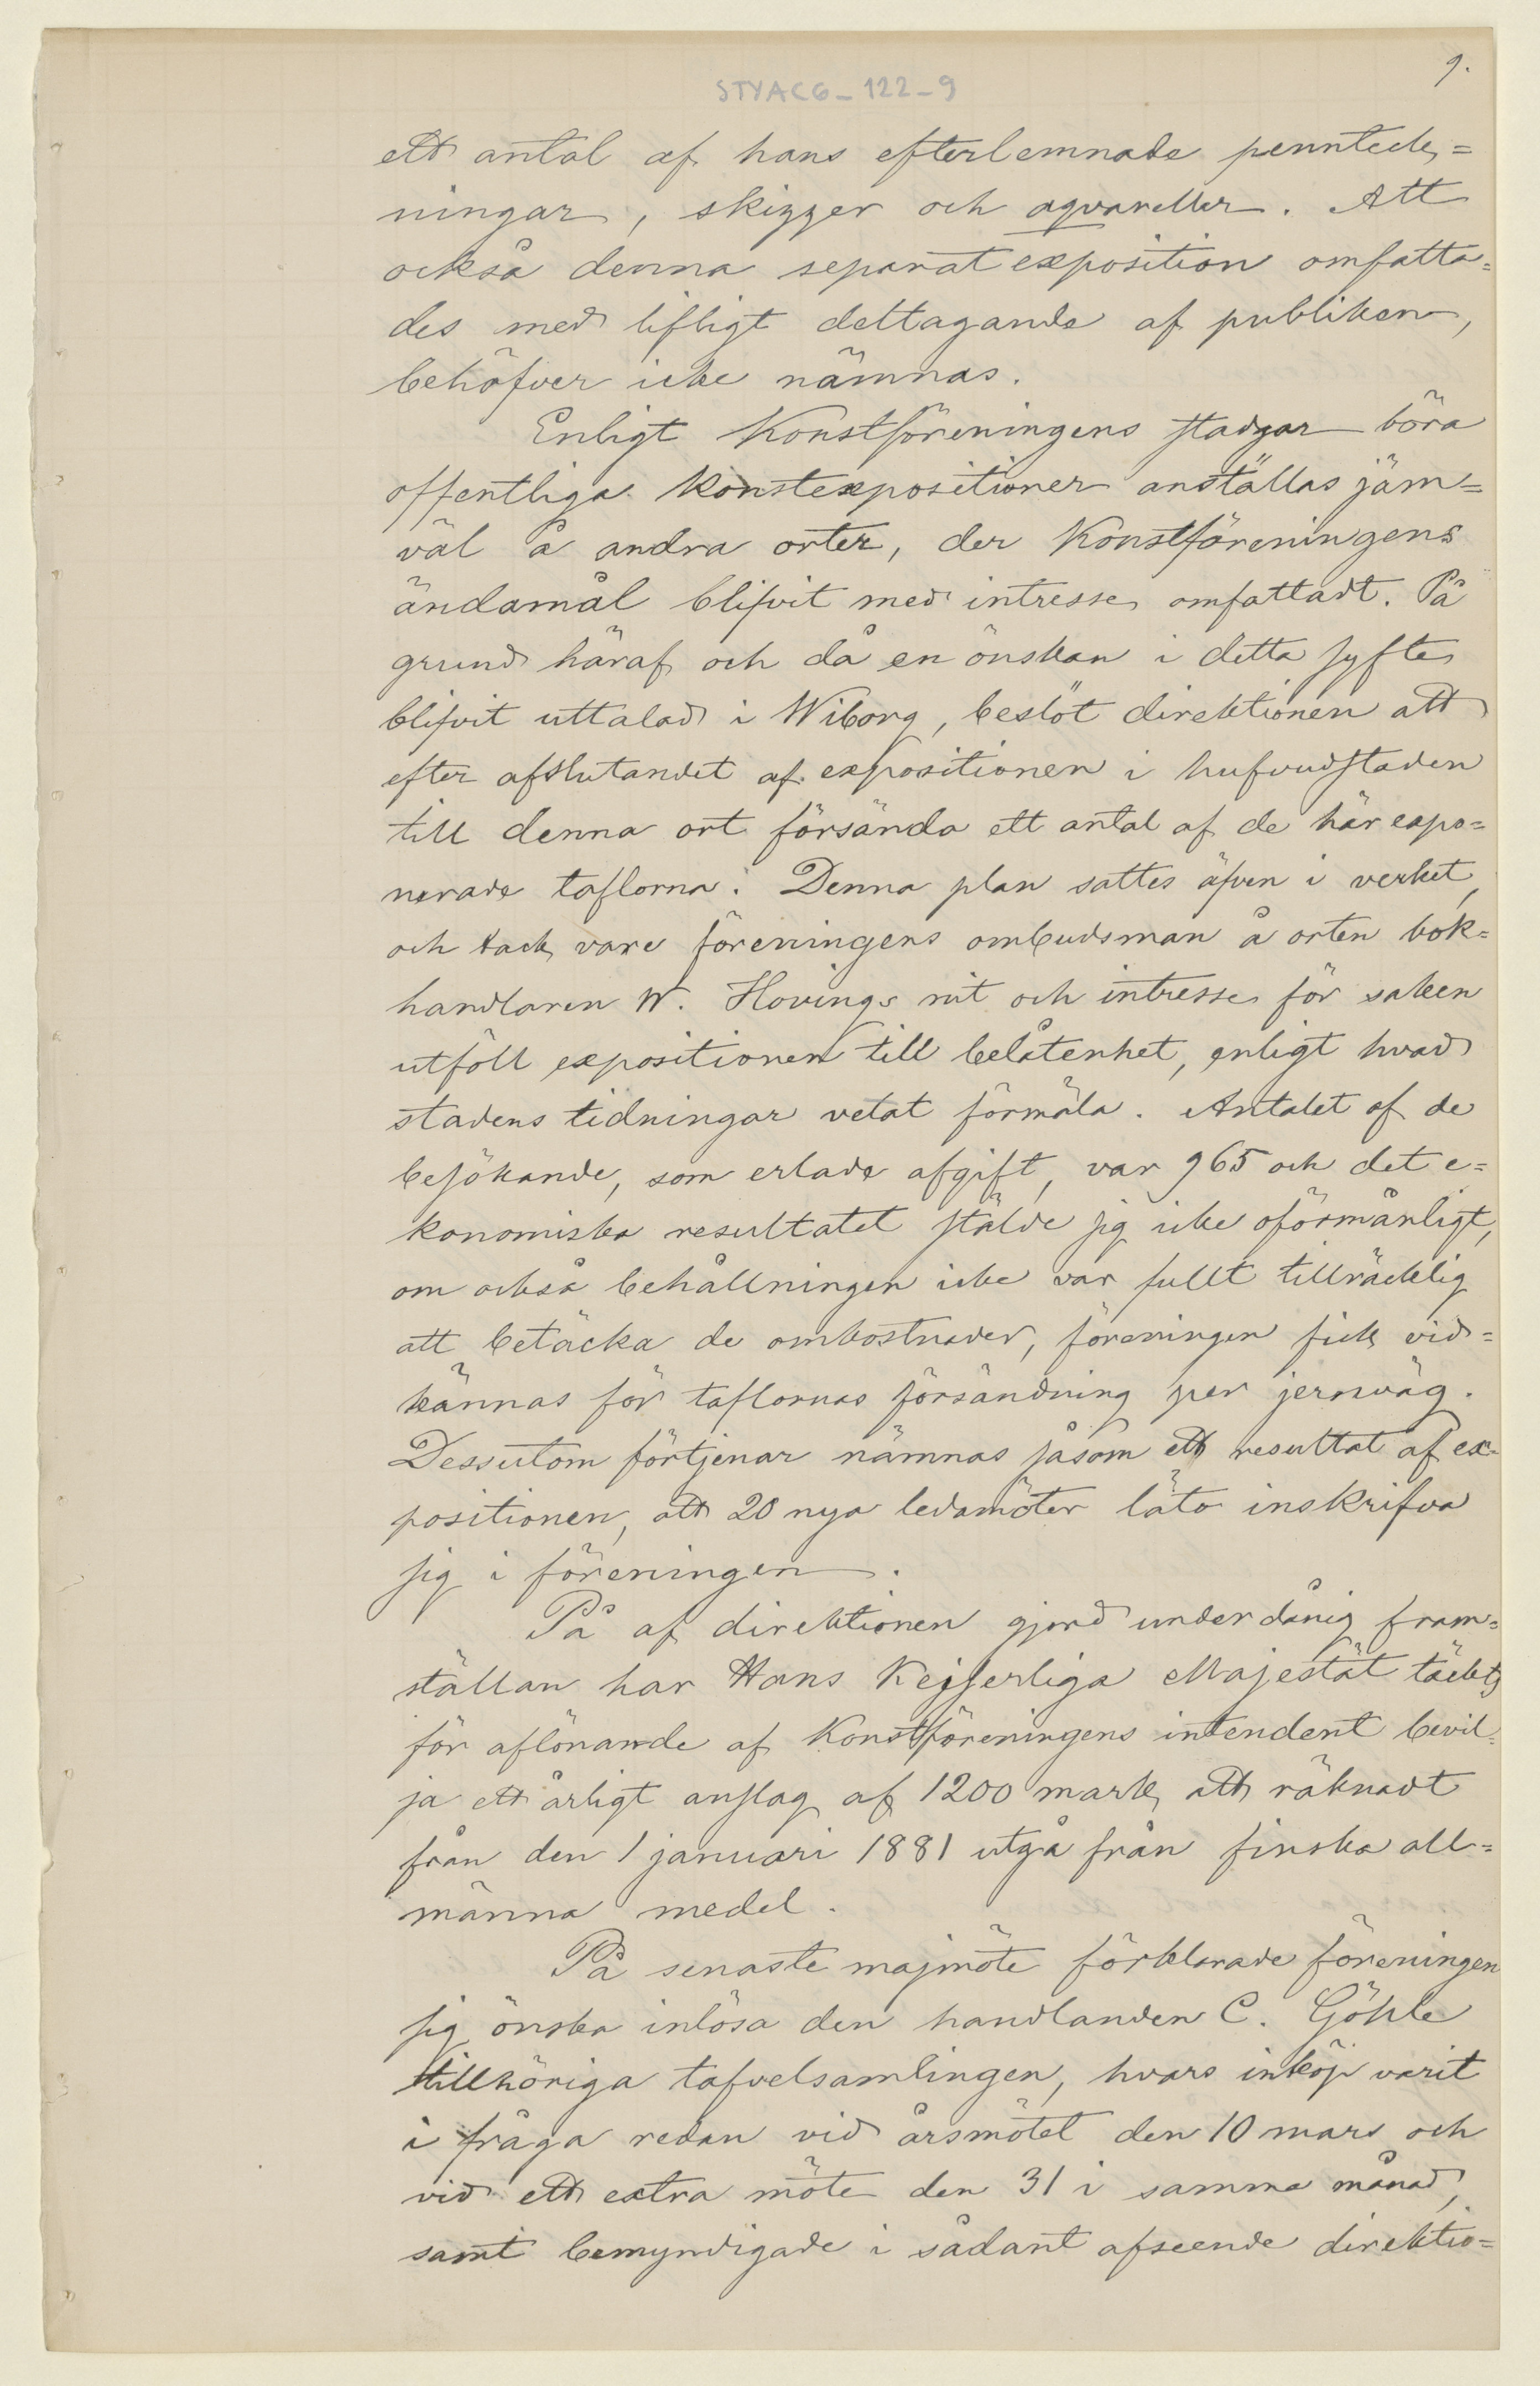 9.
STYACG_122_9
ett antal af hans efterlemnade pennteck=
ningar, skizzer och aqvareller. Att
också denna separat exposition omfatta=
des med lifligt deltagande af publiken,
behöfver icke nämnas.
Enligt Konstföreningens stadgar böra
offentliga konstexpositioner anställas jäm=
väl å andra orter, der Konstföreningens
ändamål blifvit med intresse omfattadt. På
grund häraf och då en önskan i detta syfte
blifvit uttalad i Wiborg, beslöt direktionen att
efter afslutandet af expositionen i hufvudstaden
till denna ort försända ett antal af de här expo=
nerade taflorna. Denna plan sattes äfven i verket,
och tack vare föreningens ombudsman å orten bok=
handlaren W. Hovings nit och intresse för saken
utföll expositionen till belåtenhet, enligt hvad
stadens tidningar vetat förmäla. Antalet af de
besökande, som erlade afgift, var 965 och det e=
konomiska resultatet stälde sig icke oförmånligt,
om också behållningen icke var fullt tillräcklig
att betäcka de omkostnader, föreningen fick vid=
kännas för taflornas försändning per jernväg.
Dessutom förtjenar nämnas såsom ett resultat af ex=
positionen, att 20 nya ledamöter läto inskrifva
sig i föreningen.
På af direktionen gjord underdånig fram=
ställan har Hans Kejserliga Majestät täckts
för aflönande af Konstföreningens intendent bevil=
ja ett årligt anslag af 1200 mark, att räknadt
från den 1 januari 1881 utgå från finska all=
männa medel.
På senaste majmöte förklarade föreningen
sig önska inlösa den handlanden C. Göhle
tillhöriga tafvelsamlingen, hvars inköp varit
i fråga redan vid årsmötet den 10 mars och
vid ett extra möte den 31 i samma månad,
samt bemyndigade i sådant afseende direktio=